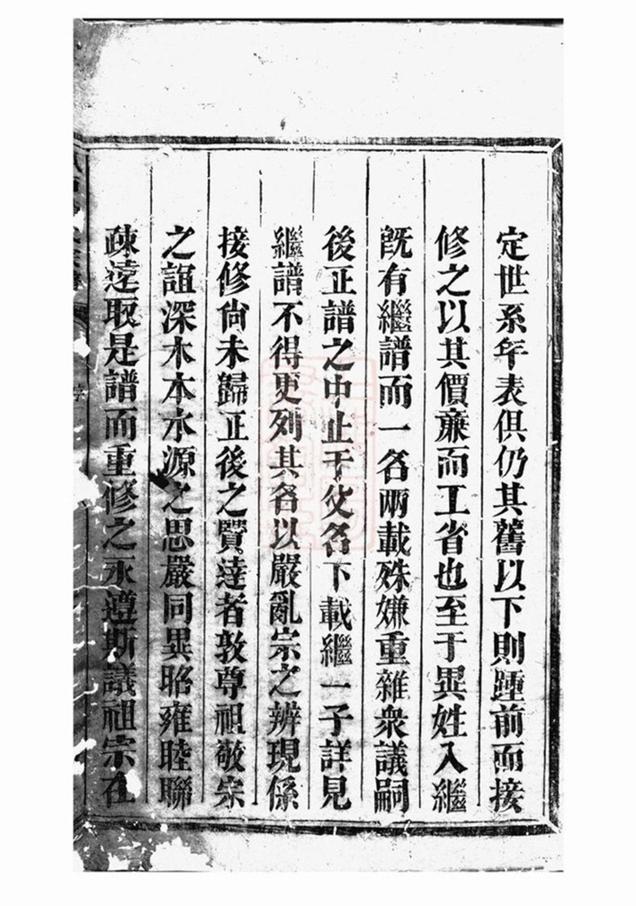 定世系年表俱仍其舊以下則踵前而接
修之以其價亷而工省也至于異姓入繼
旣有繼譜而一名兩載殊嫌重雜衆議嗣
後正譜之中止于父名下載繼一子詳見
繼譜不得更列其名以嚴亂宗之辨現係
接修尙未歸正後之賢達者敦尊祖敬宗
之誼深木本水源之思嚴同異昭雍睦聯
疎遠取是譜而重修之永遵斯議祖宗在